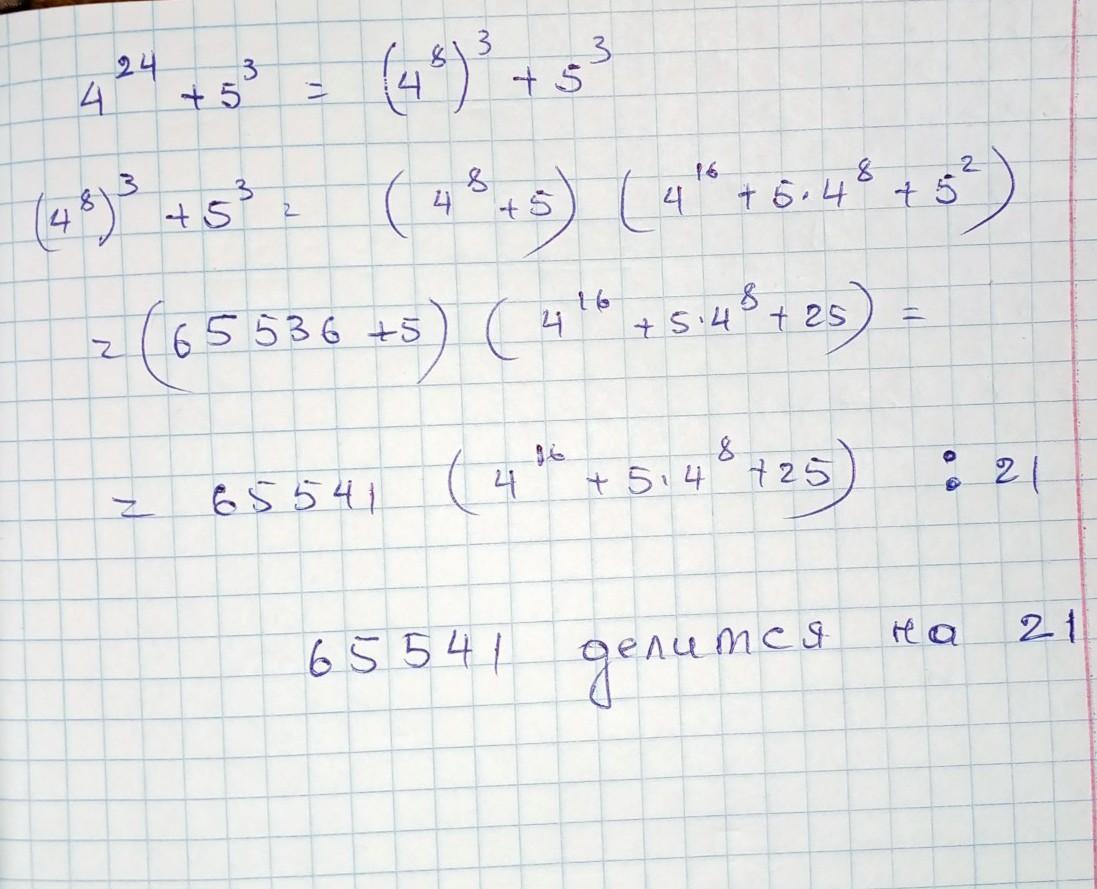 4²⁴ + 5³ = (4⁸)³ + 5³
(4⁸)³ + 5³ = (4⁸ + 5) (4¹⁶ + 5·4⁸ + 5²)
= (65536 + 5) (4¹⁶ + 5·4⁸ + 25) =
= 65541 (4¹⁶ + 5·4⁸ + 25) : 21
65541 делится на 21